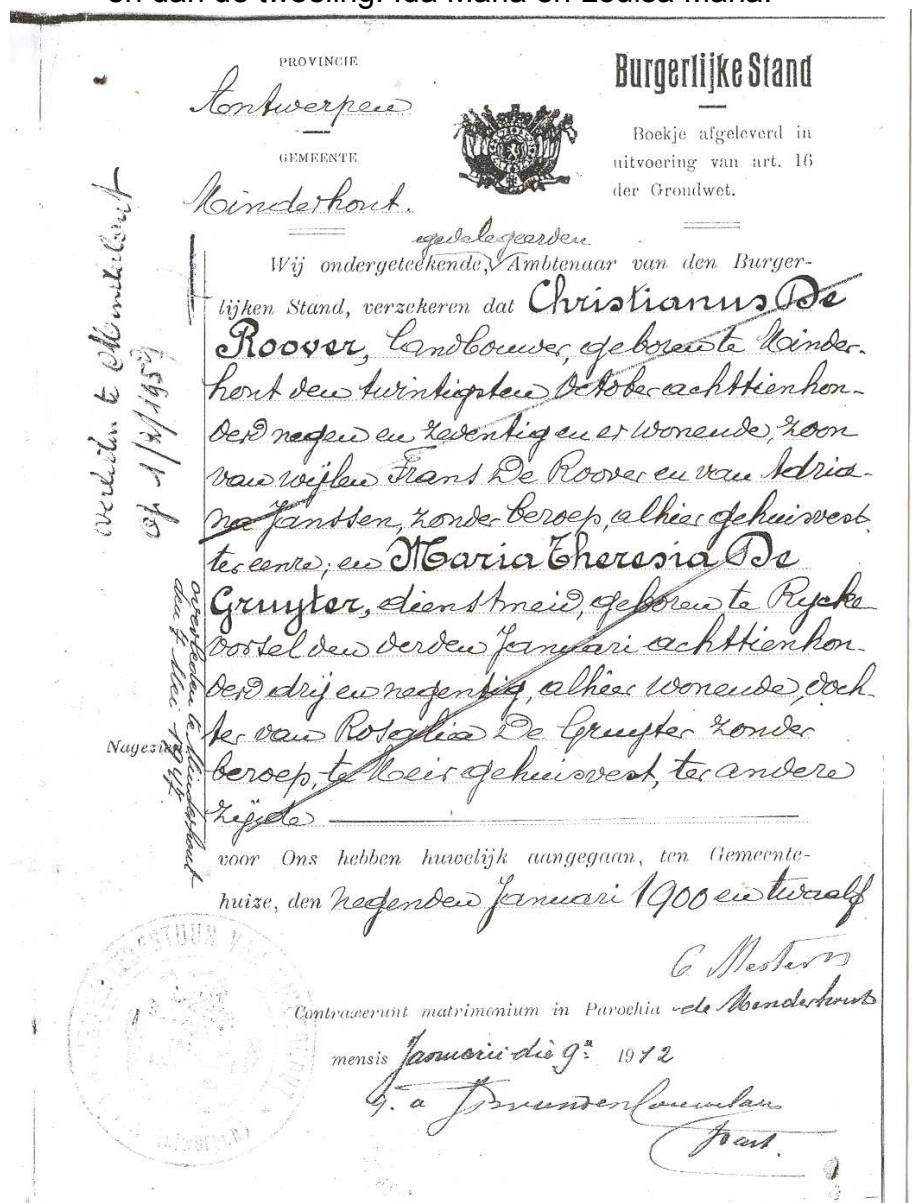 en dan de tweeling: Ida Maria en Louisa Maria.
PROVINCIE
Antwerpen
GEMEENTE
Minderhout.
Burgerlijke Stand
Boekje afgeleverd in
uitvoering van art. 16
der Grondwet.
gedelegeerden
Wij ondergeteekende, Ambtenaar van den Burger-
lijken Stand, verzekeren dat Christianus De
Roover, landbouwer, geboren te Minder-
hout den twintigsten October achttienhon-
derd negen en zeventig en er wonende, zoon
van wijlen Frans De Roover en van Adria-
na Janssen, zonder beroep, alhier gehuisvest
ter eenre; en Maria Theresia De
Gruyter, dienstmeid, geboren te Rycke
vorsel den derden Januari achttienhon-
derd drij en negentig, alhier wonende, doch-
ter van Rosalia De Gruyter zonder
beroep, te Meir gehuisvest, ter andere
zijde
voor Ons hebben huwelijk aangegaan, ten Gemeente-
huize, den negenden Januari 1900 en twaalf
Contraxerunt matrimonium in Parochia de Minderhout
mensis Januarii die 9a 1912
Past.
overleden te Minderhout
op 1/2/1959
overleden te Minderhout
den 7 Mei
Nagezien